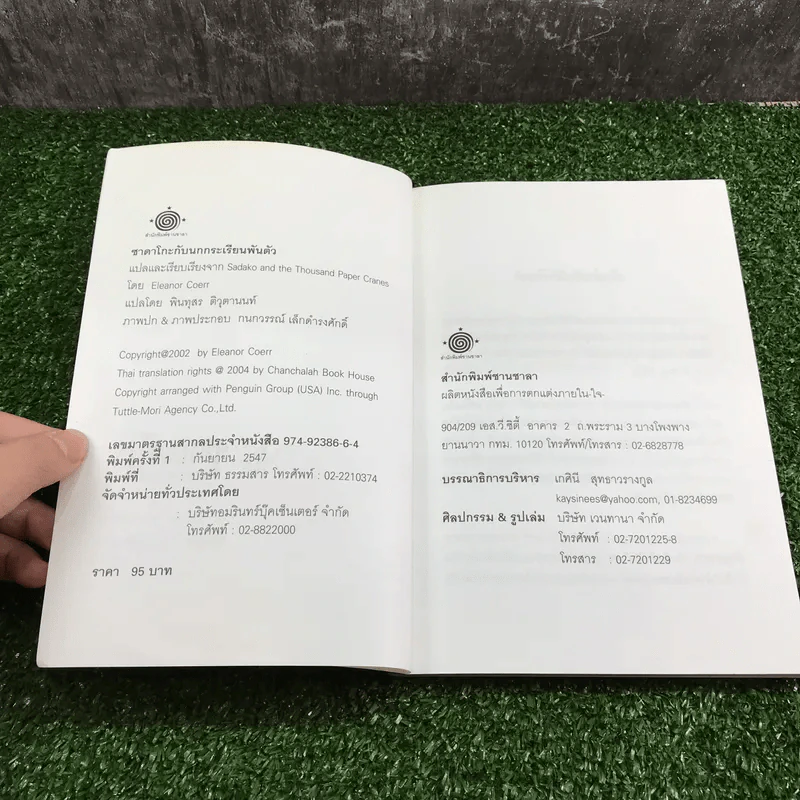 สำนักพิมพ์ชานชาลา
ซาดาโกะกับนกกระเรียนพันตัว
แปลและเรียบเรียงจาก Sadako and the Thousand Paper Cranes
โดย Eleanor Coerr
แปลโดย พินทุสร ติวุตานนท์
ภาพปก & ภาพประกอบ กนกวรรณ์ เล็กดำรงศักดิ์
Copyright@2002 by Eleanor Coerr
Thai translation rights @ 2004 by Chanchalah Book House
Copyright arranged with Penguin Group (USA) Inc. through
Tuttle-Mori Agency Co.,Ltd.
เลขมาตรฐานสากลประจำหนังสือ 974-92386-6-4
พิมพ์ครั้งที่ 1 : กันยายน 2547
พิมพ์ที่ : บริษัท ธรรมสาร โทรศัพท์ : 02-2210374
จัดจำหน่ายทั่วประเทศโดย
: บริษัทอมรินทร์บุ๊คเซ็นเตอร์ จำกัด
โทรศัพท์ : 02-8822000
ราคา 95 บาท
สำนักพิมพ์ชานชาลา
สำนักพิมพ์ชานชาลา
ผลิตหนังสือเพื่อการตกแต่งภายใน-ใจ-
904/209 เอส.วี.ซิตี้ อาคาร 2 ถ.พระราม 3 บางโพงพาง
ยานนาวา กทม. 10120 โทรศัพท์/โทรสาร : 02-6828778
บรรณาธิการบริหาร เกศินี สุทธาวรางกูล
kaysinees@yahoo.com, 01-8234699
ศิลปกรรม & รูปเล่ม บริษัท เวนทานา จำกัด
โทรศัพท์ : 02-7201225-8
โทรสาร : 02-7201229